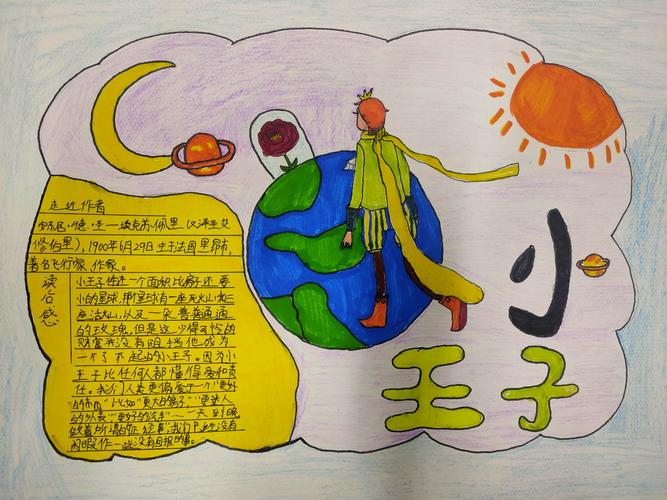 走近作者
安东尼·德·圣—埃克苏佩里(又译圣艾
修伯里),1900年6月29日生于法国里昂市,
著名飞行家、作家。
读后感
小王子住在一个面积比房子还要
小的星球,那个星球有一座死火山和二
座活火山,以及一朵普普通通
的玫瑰,但是这少得可怜的
财富并没有阻挡他成为
一个了不起的小王子。因为小
王子比任何人都懂得爱和责
任。我们人类更偏爱于一个"更好
的东西"比如"更大的房子""更迷人
的外表""更好的洗手"……一天到晚
做着所谓的正经事,我们已经没有
闲暇作一些没有目的的事。
小
王子